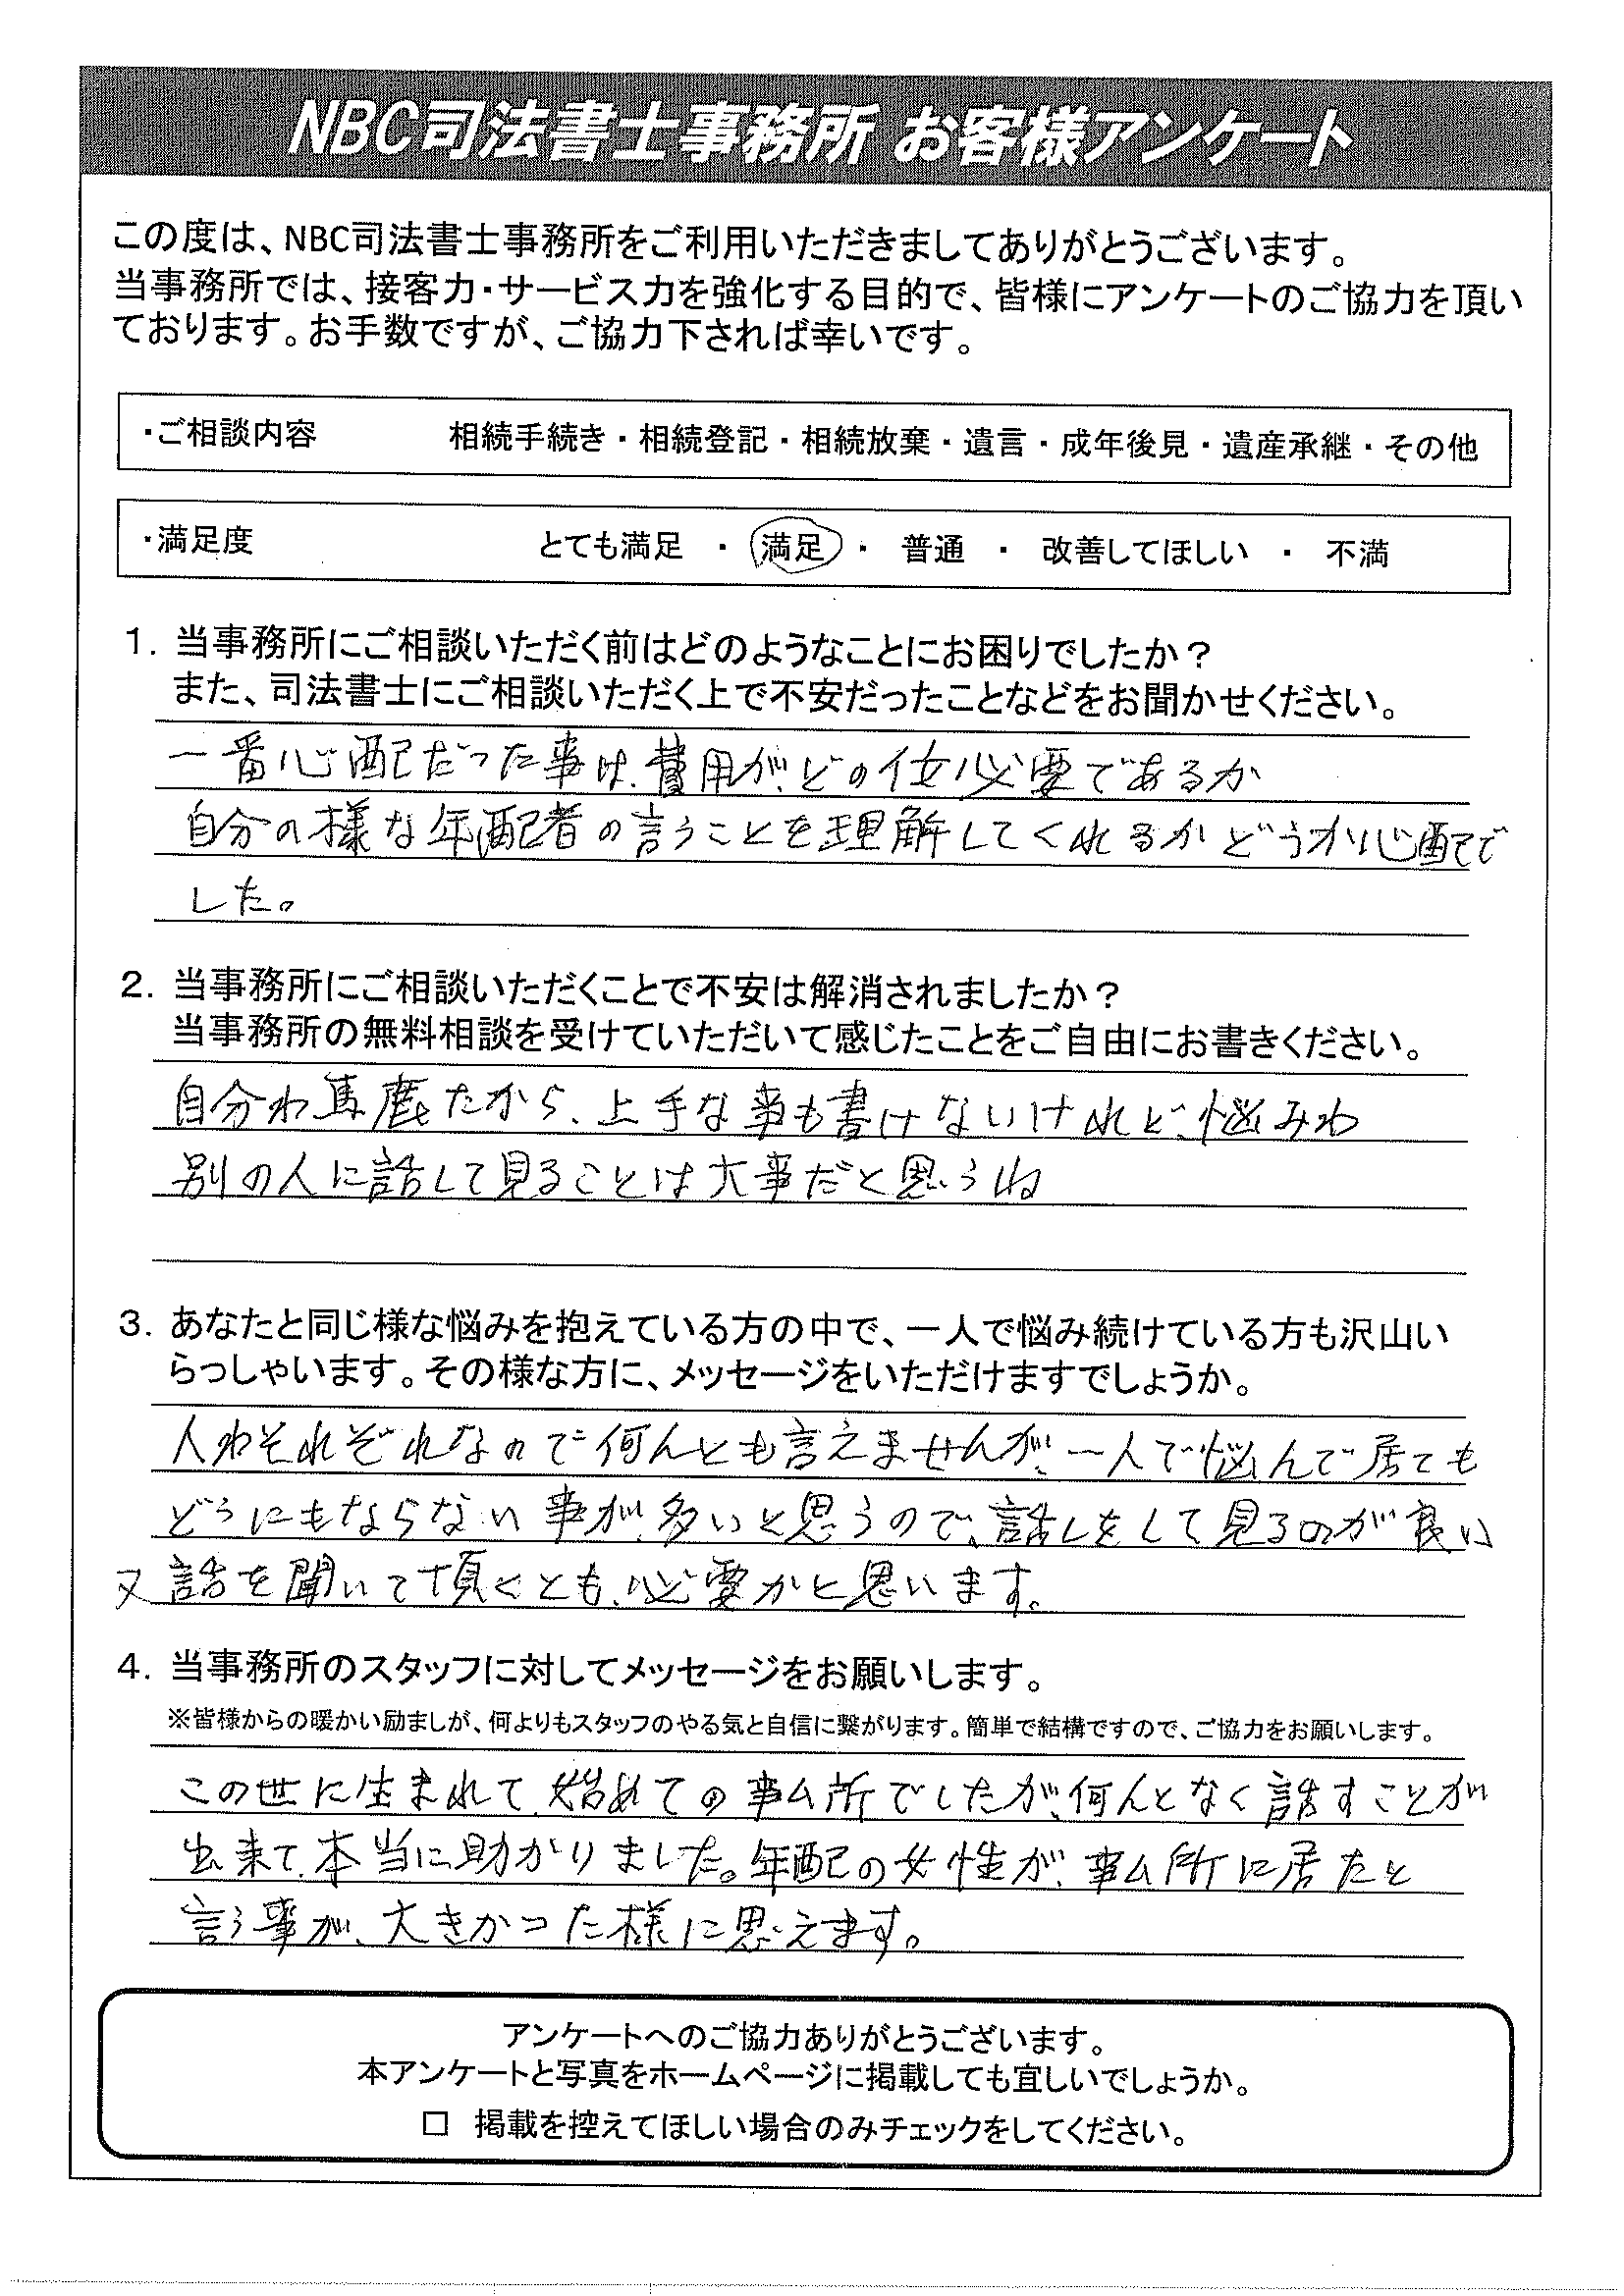 NBC司法書士事務所 お客様アンケート
この度は、NBC司法書士事務所をご利用いただきましてありがとうございます。
当事務所では、接客力・サービス力を強化する目的で、皆様にアンケートのご協力を頂い
ております。お手数ですが、ご協力下されば幸いです。
・ご相談内容 相続手続き・相続登記・相続放棄・遺言・成年後見・遺産承継・その他
・満足度 とても満足 ・ 満足 ・ 普通 ・ 改善してほしい ・ 不満
1. 当事務所にご相談いただく前はどのようなことにお困りでしたか？
また、司法書士にご相談いただく上で不安だったことなどをお聞かせください。
一番心配だった事は、費用が、どの位必要であるか
自分の様な年配者の言うことを理解してくれるかどうか心配で
した。
2. 当事務所にご相談いただくことで不安は解消されましたか？
当事務所の無料相談を受けていただいて感じたことをご自由にお書きください。
自分わ馬鹿だから、上手な事も書けないけれど、悩みわ
別の人に話して見ることは大事だと思うね
3. あなたと同じ様な悩みを抱えている方の中で、一人で悩み続けている方も沢山い
らっしゃいます。その様な方に、メッセージをいただけますでしょうか。
人わそれぞれなので何んとも言えませんが、一人で悩んで居ても
どうにもならない事が、多いと思うので、話しをして見るのが良い
又話を聞いて頂くとも、必要かと思います。
4. 当事務所のスタッフに対してメッセージをお願いします。
※皆様からの暖かい励ましが、何よりもスタッフのやる気と自信に繋がります。簡単で結構ですので、ご協力をお願いします。
この世に生まれて、始めての事ム所でしたが、何んとなく話すことが
出来て、本当に助かりました。年配の女性が、事ム所に居たと
言う事が、大きかった様に思えます。
アンケートへのご協力ありがとうございます。
本アンケートと写真をホームページに掲載しても宜しいでしょうか。
□ 掲載を控えてほしい場合のみチェックをしてください。